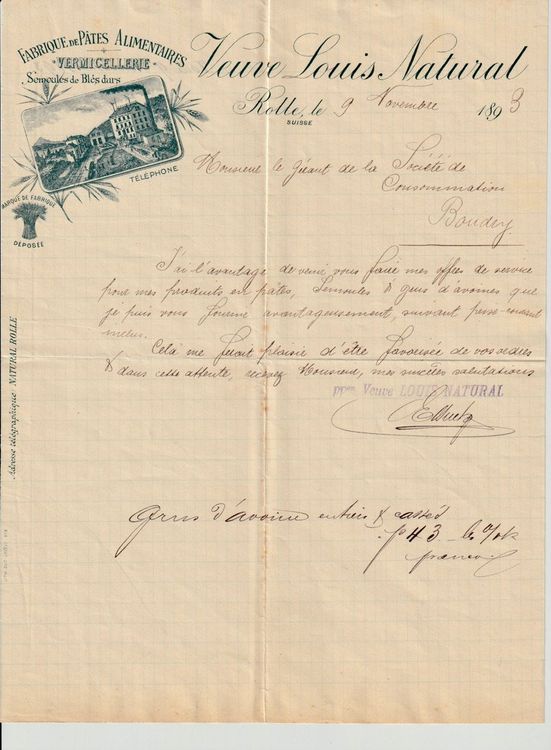 FABRIQUE DE PÂTES ALIMENTAIRES
VERMICELLERIE
Semoules de Blés durs
TÉLÉPHONE
MARQUE DE FABRIQUE
DÉPOSÉE
Adresse télégraphique NATURAL ROLLE
Veuve Louis Natural
Rolle, le 9 Novembre 1893
SUISSE
Monsieur le Gérant de la Société de
Consommation
Boudry
J'ai l'avantage de venir vous faire mes offres de service
pour mes produits en pâtes, Semoules & grus d'avoines que
je puis vous fournir avantageusement, suivant
inclus.
Cela me ferait plaisir d'être favorisée de vos ordres
& dans cette attente, recevez Monsieur, mes sincères salutations
ppon Veuve LOUIS NATURAL
Grus d'avoine entiers & cassés
43 les %
franco